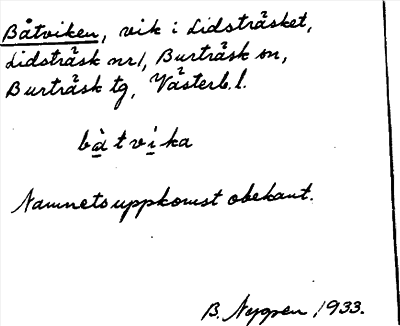 Båtviken, vik i Lidsträsket,
Lidsträsk nr 1, Burträsk sn,
Burträsk tg, Västerb. l.
bàtvika
Namnets uppkomst obekant.
B. Nygren 1933.